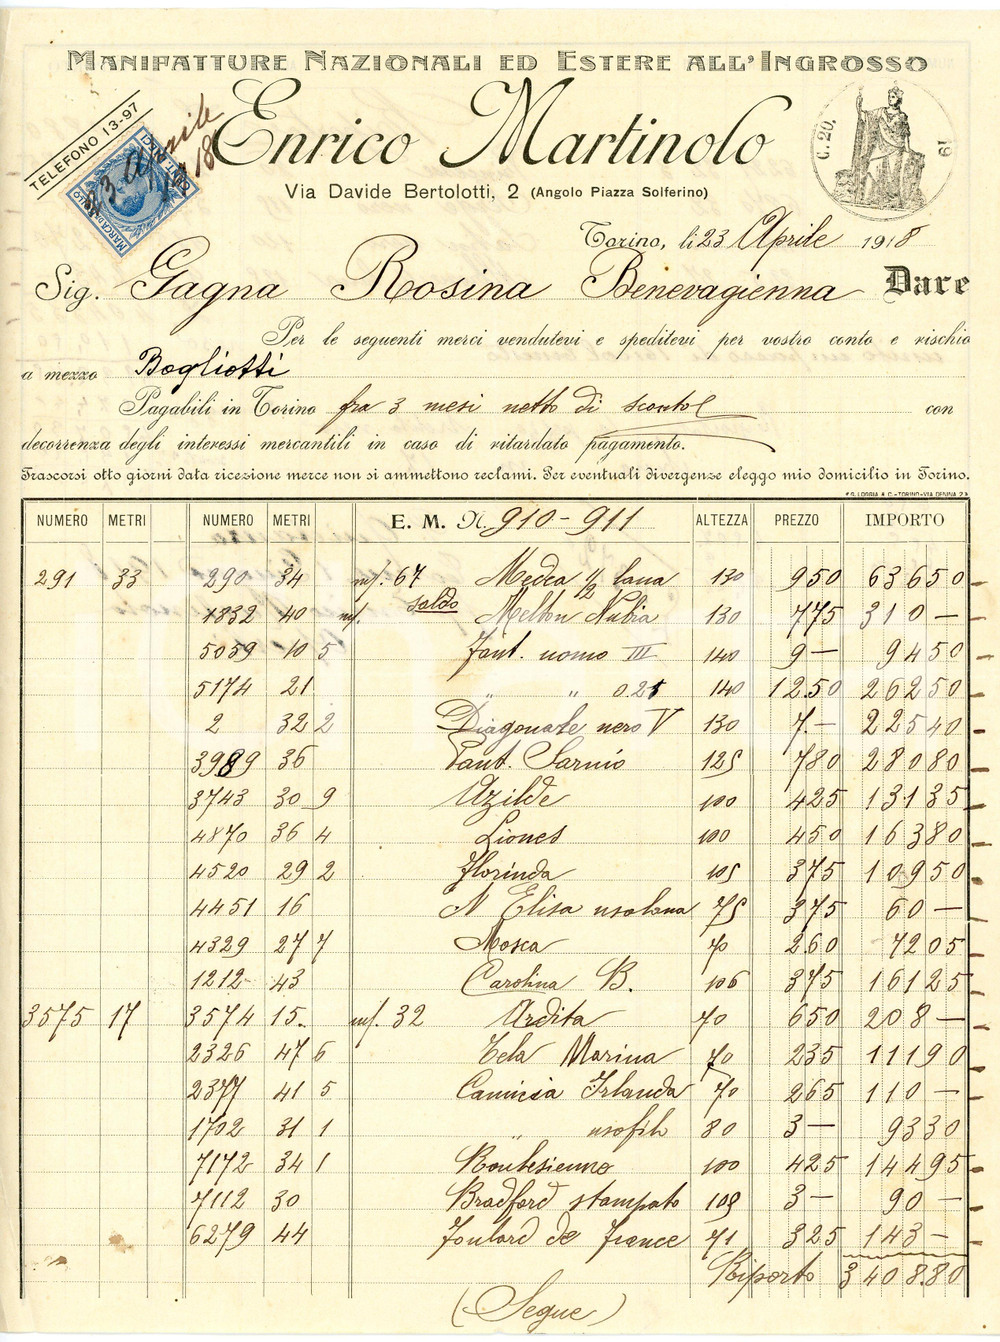 MANIFATTURE NAZIONALI ED ESTERE ALL'INGROSSO
TELEFONO 13-97
Enrico Martinolo
Via Davide Bertolotti, 2 (Angolo Piazza Solferino)
C. 20. 19
MARCA DA BOLLO
CENT. DIECI
23 Aprile
18
Torino, li 23 Aprile 1918
Sig. Gagna Rosina Benevagienna Dare
Per le seguenti merci vendutevi e speditevi per vostro conto e rischio
a mezzo Bogliotti
Pagabili in Torino fra 3 mesi netto di sconto con
decorrenza degli interessi mercantili in caso di ritardato pagamento.
Trascorsi otto giorni data ricezione merce non si ammettono reclami. Per eventuali divergenze eleggo mio domicilio in Torino.
G. LOGGIA & C. - TORINO - VIA DENINA 2
NUMERO METRI NUMERO METRI E. M. N. 910-911 ALTEZZA PREZZO IMPORTO
291 33 290 34 m/. 67 Medea 1/2 lana 130 950 63650
1832 40 m/. saldo Melton Nubia 130 775 310 —
5059 10 5 Fant. uomo III 140 9 — 9450
5174 21 " " 0.21 140 1250 26250
2 32 2 Diagonale nero V 130 7.— 22540
3989 36 Fant. Sarnio 125 780 28080
3743 30 9 Azilde 100 425 13135
4870 36 4 Liones 100 450 16380
4520 29 2 Florinda 105 375 10950
4451 16 N Elisa usolana 75 375 60 —
4329 27 7 Mosca 70 260 7205
1212 43 Carolina B. 106 375 16125
3575 17 3574 15. m/. 32 Ardita 70 650 208 —
2326 47 6 Tela Marina 70 235 11190
2377 41 5 Camicia Irlanda 70 265 110 —
1702 31 1 " usofil 80 3 — 9330
7172 34 1 Roubesienne 100 425 14495
7112 30 Bradford stampato 108 3 — 90 —
6279 44 Foulard de France 71 325 143 —
Riporto 3408.80
(Segue)